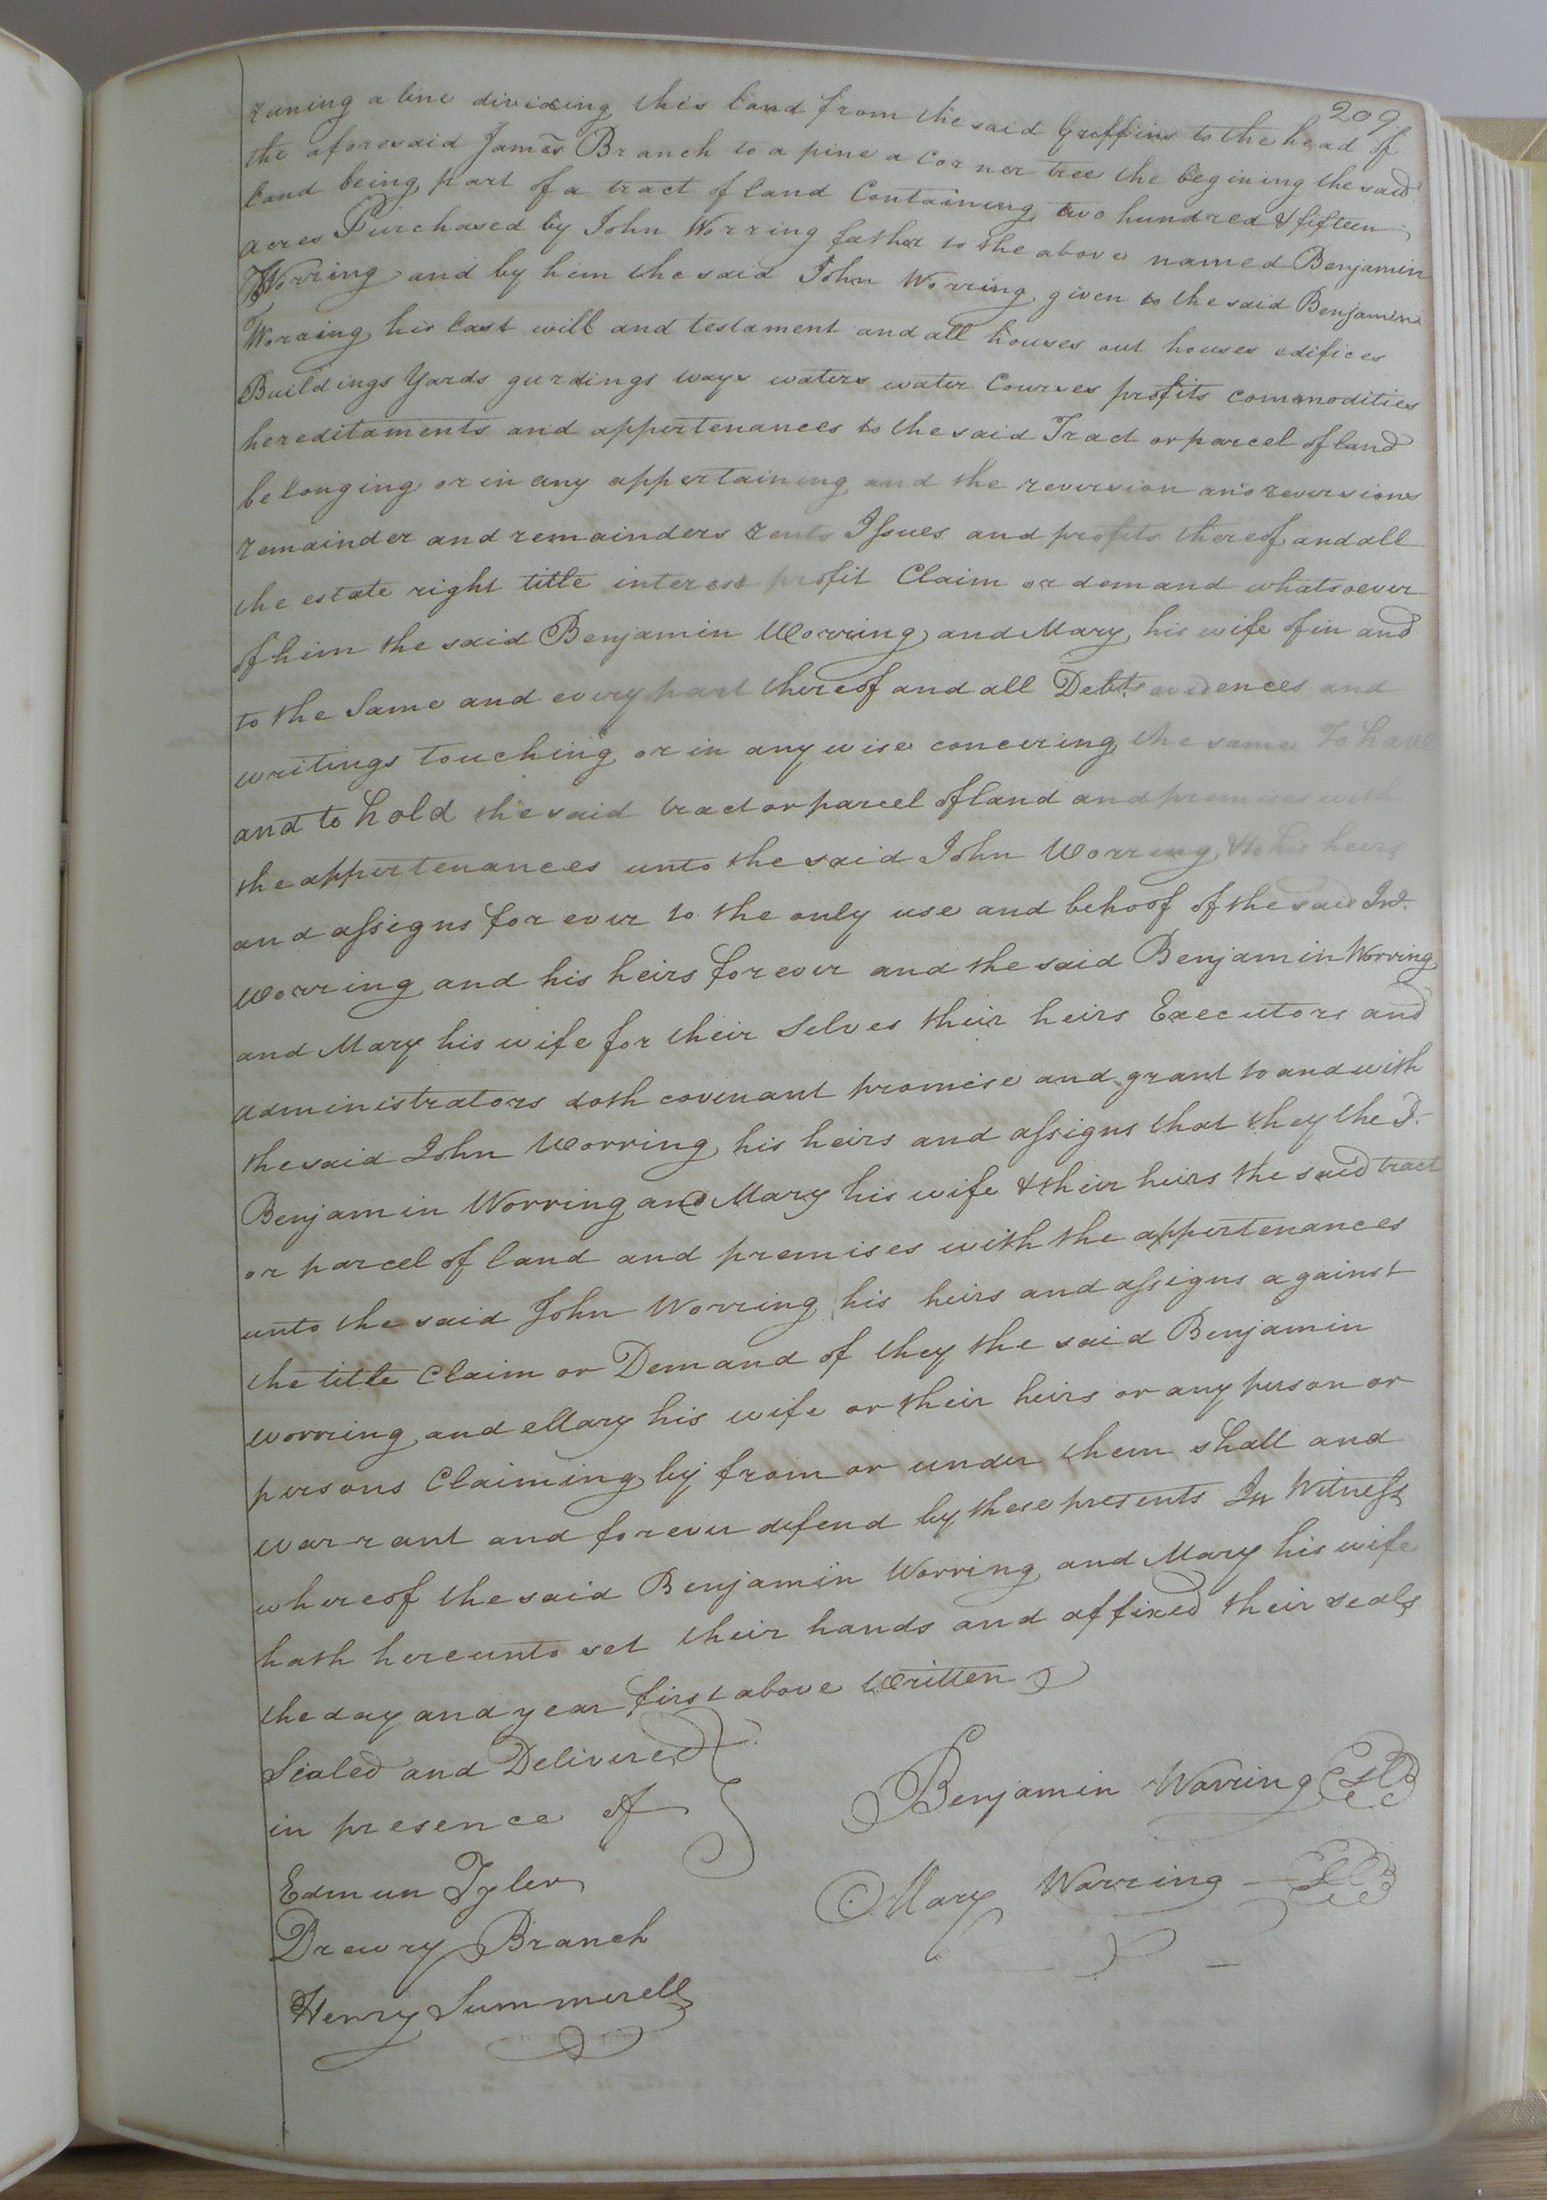 209
runing a line dividing this land from the said Griffins to the head of
the aforesaid James Branch to a pine a corner tree the begining the said
land being part of a tract of land Containing two hundred & fifteen
acres Purchased by John Worring father to the above named Benjamin
Worring and by him the said John Worring given to the said Benjamin
Worring his last will and testament and all houses out houses edifices
Buildings Yards gurdings ways waters water Courses profits commodities
hereditaments and appertenances to the said Tract or parcel of land
belonging or in any appertaining and the reversion and reversions
remainder and remainders rents Issues and profits thereof and all
the estate right title interest profit Claim or demand whatsoever
of him the said Benjamin Worring and Mary his wife of in and
to the Same and every part thereof and all Debts evidences and
writings touching or in any wise concering the same To have
and to hold the said tract or parcel of land and premises with
the appertenances unto the said John Worring & to his heirs
and assigns for ever to the only use and behoof of the said Jno.
Worring and his heirs for ever and the said Benjamin Worring
and Mary his wife for their Selves their heirs Executors and
administrators doth covenant promise and grant to and with
the said John Worring his heirs and assigns that they the sd.
Benjamin Worring and Mary his wife & their heirs the said tract
or parcel of land and premises with the appertenances
unto the said John Worring his heirs and assigns against
the title Claim or Demand of they the said Benjamin
Worring and Mary his wife or their heirs or any person or
persons Claiming by from or under them shall and
warrant and forever defend by these presents In Witness
whereof the said Benjamin Worring and Mary his wife
hath hereunto set their hands and affixed their seals
the day and year first above Written
Sealed and Delivered
in presence of
Benjamin Worring
Edmun Tyler
Mary Worring
Drewry Branch
Henry Summerell